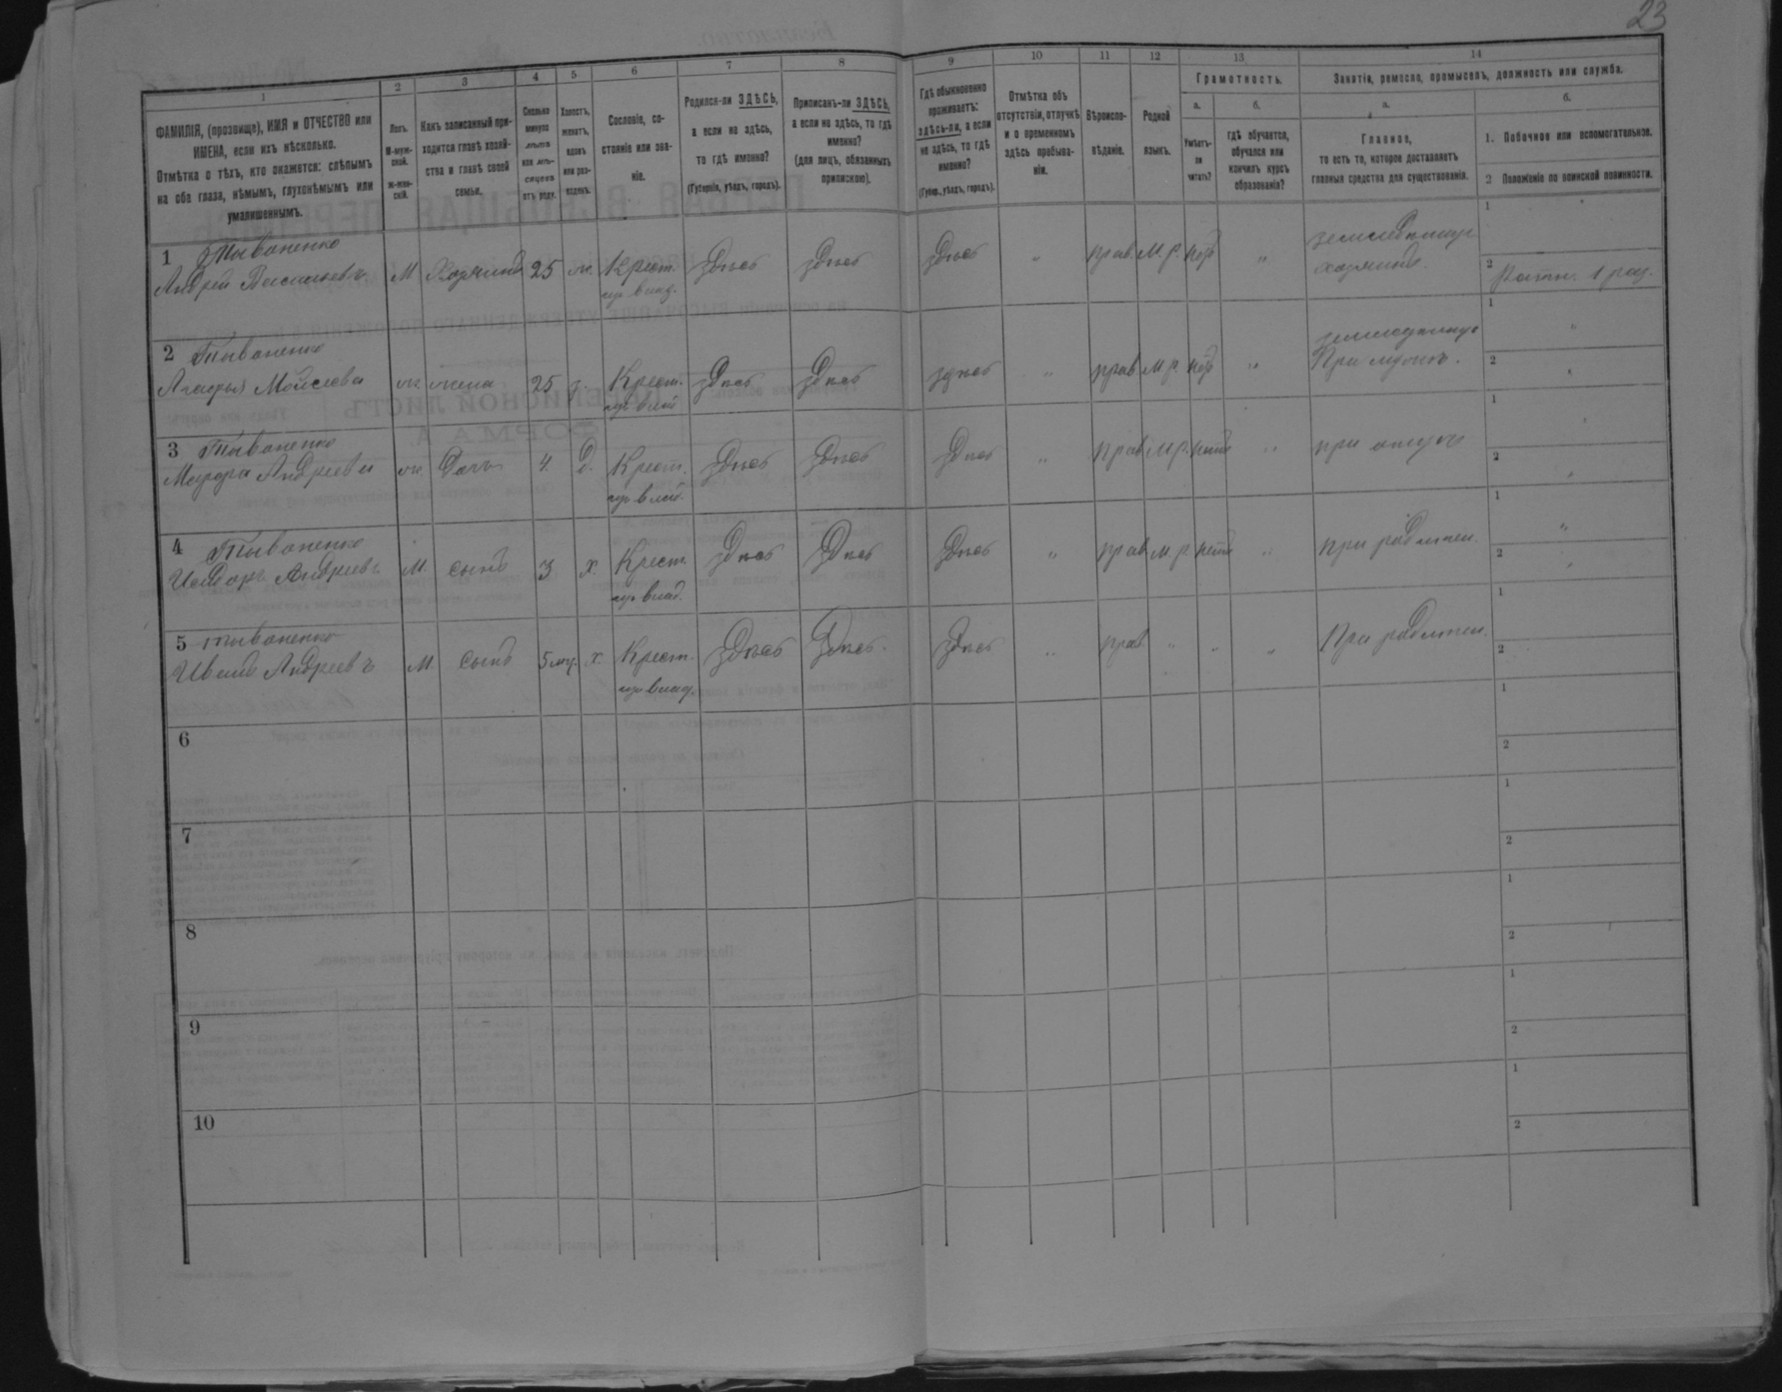 23
1 2 3 4 5 6 7 8 9 10 11 12 13 14
ФАМИЛІЯ, (прозвище), ИМЯ и ОТЧЕСТВО или
ИМЕНА, если ихъ нѣсколько.
Отмѣтка о тѣхъ, кто окажется: слѣпымъ
на оба глаза, нѣмымъ, глухонѣмымъ или
умалишеннымъ.
Полъ.
М-муж-
ской.
Ж-жен-
скій.
Какъ записанный при-
ходится главѣ хозяй-
ства и главѣ своей
семьи.
Сколько
минуло
лѣтъ
или мѣ-
сяцевъ
отъ роду.
Холостъ,
женатъ,
вдовъ
или раз-
веденъ.
Сословіе, со-
стояніе или зва-
ніе.
Родился-ли ЗДѢСЬ,
а если не здѣсь,
то гдѣ именно?
(Губернія, уѣздъ, городъ).
Приписанъ-ли ЗДѢСЬ,
а если не здѣсь, то гдѣ
именно?
(для лицъ, обязанныхъ
припискою).
Гдѣ обыкновенно
проживаетъ:
здѣсь-ли, а если
не здѣсь, то гдѣ
именно?
(Губер., уѣздъ, городъ).
Отмѣтка объ
отсутствіи, отлучкѣ
и о временномъ
здѣсь пребыва-
ніи.
Вѣроиспо-
вѣданіе.
Родной
языкъ.
Грамотность.
а.
Умѣетъ-
ли
читать?
б.
гдѣ обучается,
обучался или
кончилъ курсъ
образованія?
Занятія, ремесло, промыселъ, должность или служба.
а.
Главное,
то есть то, которое доставляетъ
главныя средства для существованія.
б.
1. Побочное или вспомогательное.
2 Положеніе по воинской повинности.
1 Тываненко
Андрей Васильевъ М Хозяинъ 25 ж. Крест. здѣсь здѣсь здѣсь " прав. м.р. нѣтъ " земледѣлецъ
хозяинъ. 1
2 Ратн. 1 раз.
2 Тываненко
Агафья Моисеева ж. жена 25 з. Крест. здѣсь здѣсь здѣсь " прав м.р. нѣтъ "
При мужѣ. 1 "
2 "
3 Тываненко
Андреева ж. Дочь 4. д. Крест. здѣсь здѣсь здѣсь " прав м.р. нѣтъ " при отцѣ 1
2 "
4 Тываненко
Андреевъ М. сынъ 3 х. Крест. здѣсь здѣсь здѣсь " прав м.р. нѣтъ " при родител. 1 "
2 "
5 Тываненко
Иванъ Андреевъ М. сынъ 5 мц. х. Крест. здѣсь здѣсь здѣсь " прав " " " При родител. 1
2
6 1
2
7 1
2
8 1
2
9 1
2
10 1
2